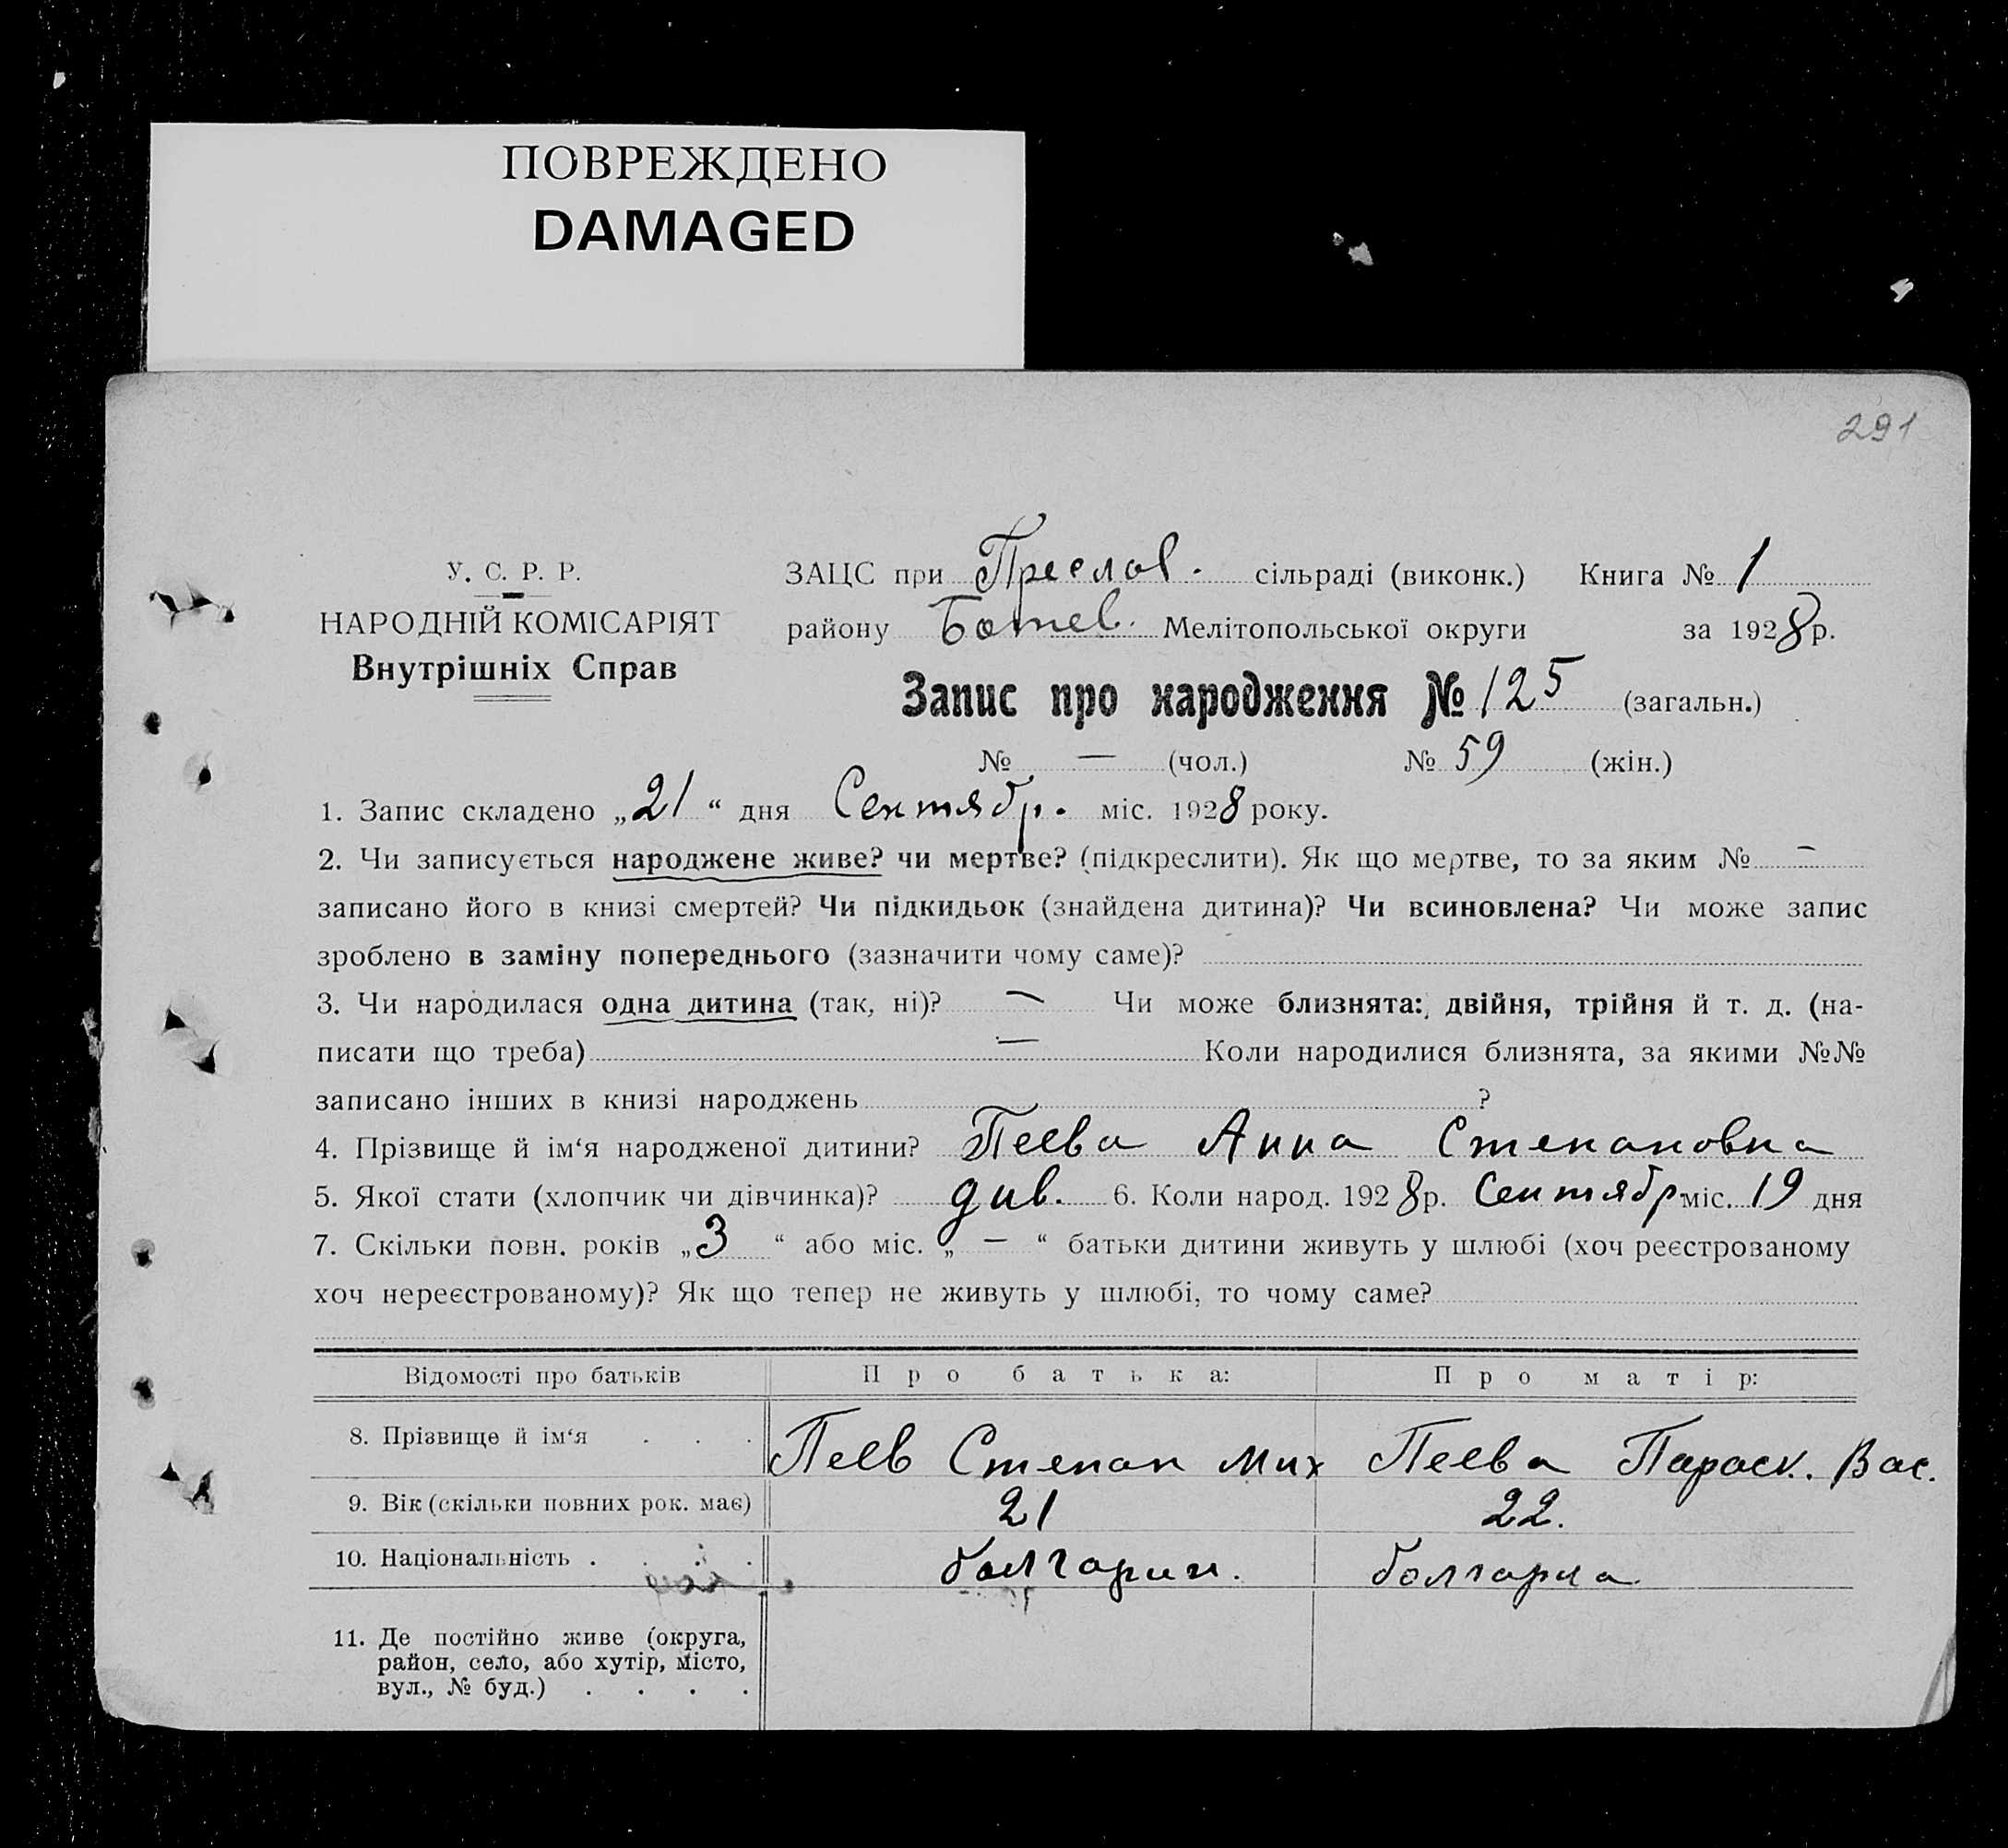 ПОВРЕЖДЕНО
DAMAGED
291
У. С. Р. Р.
НАРОДНІЙ КОМІСАРІЯТ
Внутрішніх Справ
ЗАЦС при Преслав. сільраді (виконк.) Книга № 1
району Ботев. Мелітопольської округи за 1928 р.
Запис про народження № 125 (загальн.)
№ — (чол.) № 59 (жін.)
1. Запис складено „21“ дня Сентябр. міс. 1928 року.
2. Чи записується народжене живе? чи мертве? (підкреслити). Як що мертве, то за яким № —
записано його в книзі смертей? Чи підкидьок (знайдена дитина)? Чи всиновлена? Чи може запис
зроблено в заміну попереднього (зазначити чому саме)?
3. Чи народилася одна дитина (так, ні)? — Чи може близнята: двійня, трійня й т. д. (на-
писати що треба) — Коли народилися близнята, за якими №№
записано інших в книзі народжень ?
4. Прізвище й ім‘я народженої дитини? Пеева Анна Степановна
5. Якої стати (хлопчик чи дівчинка)? див. 6. Коли народ. 1928 р. Сентябр міс. 19 дня
7. Скільки повн. років „3“ або міс. „—“ батьки дитини живуть у шлюбі (хоч реєстрованому
хоч нереєстрованому)? Як що тепер не живуть у шлюбі, то чому саме?
Відомості про батьків Про батька: Про матір:
8. Прізвище й ім‘я . . . Пеев Степан Мих Пеева Параск. Вас.
9. Вік (скільки повних рок. має) 21 22.
10. Національність . . . . болгарин. болгарка
11. Де постійно живе (округа,
район, село, або хутір, місто,
вул., № буд.) . . . .